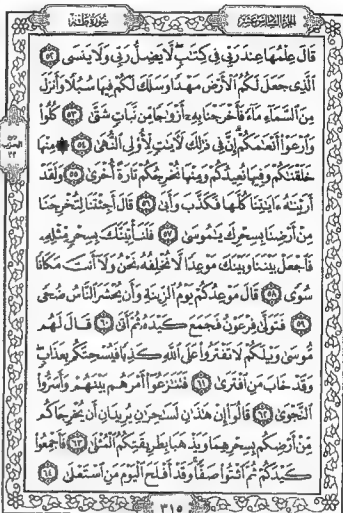 الجزء السادس عشر
سورة طه
قَالَ عِلْمُهَا عِندَ رَبِّي فِي كِتَٰبٍ لَّا يَضِلُّ رَبِّي وَلَا يَنسَى ٥٢
ٱلَّذِي جَعَلَ لَكُمُ ٱلْأَرْضَ مَهْدًا وَسَلَكَ لَكُمْ فِيهَا سُبُلًا وَأَنزَلَ
مِنَ ٱلسَّمَآءِ مَآءً فَأَخْرَجْنَا بِهِۦٓ أَزْوَٰجًا مِّن نَّبَاتٍ شَتَّىٰ ٥٣ كُلُوا۟
وَٱرْعَوْا۟ أَنْعَٰمَكُمْ إِنَّ فِي ذَٰلِكَ لَءَايَٰتٍ لِّأُو۟لِي ٱلنُّهَىٰ ٥٤ ۞ مِنْهَا
خَلَقْنَٰكُمْ وَفِيهَا نُعِيدُكُمْ وَمِنْهَا نُخْرِجُكُمْ تَارَةً أُخْرَىٰ ٥٥ وَلَقَدْ
أَرَيْنَٰهُ ءَايَٰتِنَا كُلَّهَا فَكَذَّبَ وَأَبَىٰ ٥٦ قَالَ أَجِئْتَنَا لِتُخْرِجَنَا
مِنْ أَرْضِنَا بِسِحْرِكَ يَٰمُوسَىٰ ٥٧ فَلَنَأْتِيَنَّكَ بِسِحْرٍ مِّثْلِهِۦ
فَٱجْعَلْ بَيْنَنَا وَبَيْنَكَ مَوْعِدًا لَّا نُخْلِفُهُۥ نَحْنُ وَلَآ أَنتَ مَكَانًا
سُوًى ٥٨ قَالَ مَوْعِدُكُمْ يَوْمُ ٱلزِّينَةِ وَأَن يُحْشَرَ ٱلنَّاسُ ضُحًى
٥٩ فَتَوَلَّىٰ فِرْعَوْنُ فَجَمَعَ كَيْدَهُۥ ثُمَّ أَتَىٰ ٦٠ قَالَ لَهُم
مُّوسَىٰ وَيْلَكُمْ لَا تَفْتَرُوا۟ عَلَى ٱللَّهِ كَذِبًا فَيُسْحِتَكُم بِعَذَابٍ
وَقَدْ خَابَ مَنِ ٱفْتَرَىٰ ٦١ فَتَنَٰزَعُوٓا۟ أَمْرَهُم بَيْنَهُمْ وَأَسَرُّوا۟
ٱلنَّجْوَىٰ ٦٢ قَالُوٓا۟ إِنْ هَٰذَٰنِ لَسَٰحِرَٰنِ يُرِيدَانِ أَن يُخْرِجَاكُم
مِّنْ أَرْضِكُم بِسِحْرِهِمَا وَيَذْهَبَا بِطَرِيقَتِكُمُ ٱلْمُثْلَىٰ ٦٣ فَأَجْمِعُوا۟
كَيْدَكُمْ ثُمَّ ٱئْتُوا۟ صَفًّا وَقَدْ أَفْلَحَ ٱلْيَوْمَ مَنِ ٱسْتَعْلَىٰ ٦٤
٣١٥